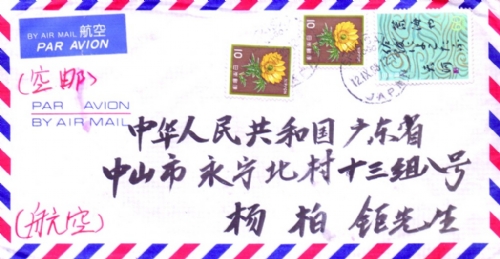 BY AIR MAIL 航空
PAR AVION
(空邮)
PAR AVION
BY AIR MAIL
10
10
12.IX.
JAPAN
中华人民共和国广东省
中山市永宁北村十三组八号
(航空)
杨柏钜先生